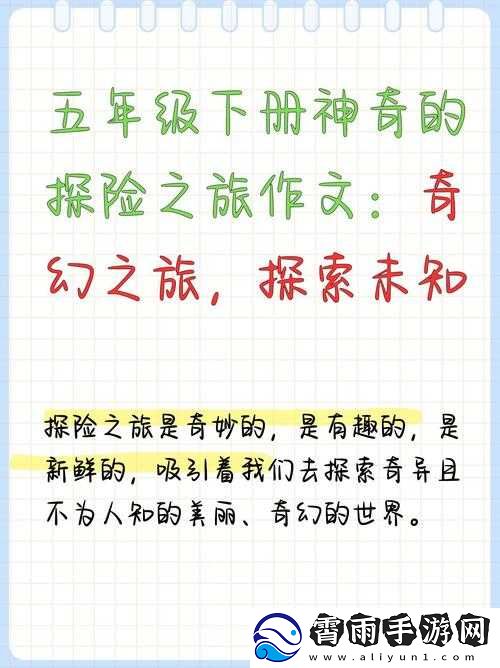 五年级下册神奇的
探险之旅作文：奇
幻之旅，探索未知
探险之旅是奇妙的，是有趣的，是
新鲜的，吸引着我们去探索奇异且
不为人知的美丽、奇幻的世界。
霄雨手游网
www.aliyun1.com